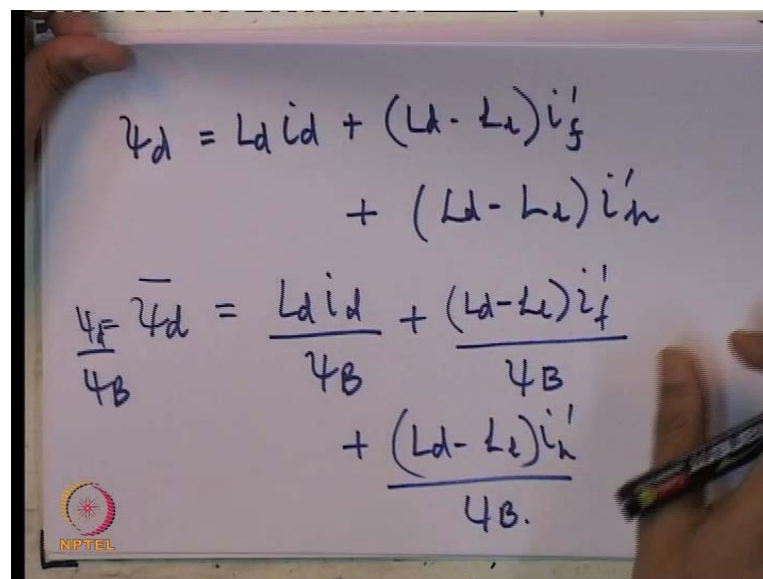 ψd = Ld id + (Ld - Ll) i'f
+ (Ld - Ll) i'h
ψd/ψB = ψ̄d = Ld id/ψB + (Ld - Ll) i'f/ψB
+ (Ld - Ll) i'h/ψB.
NPTEL